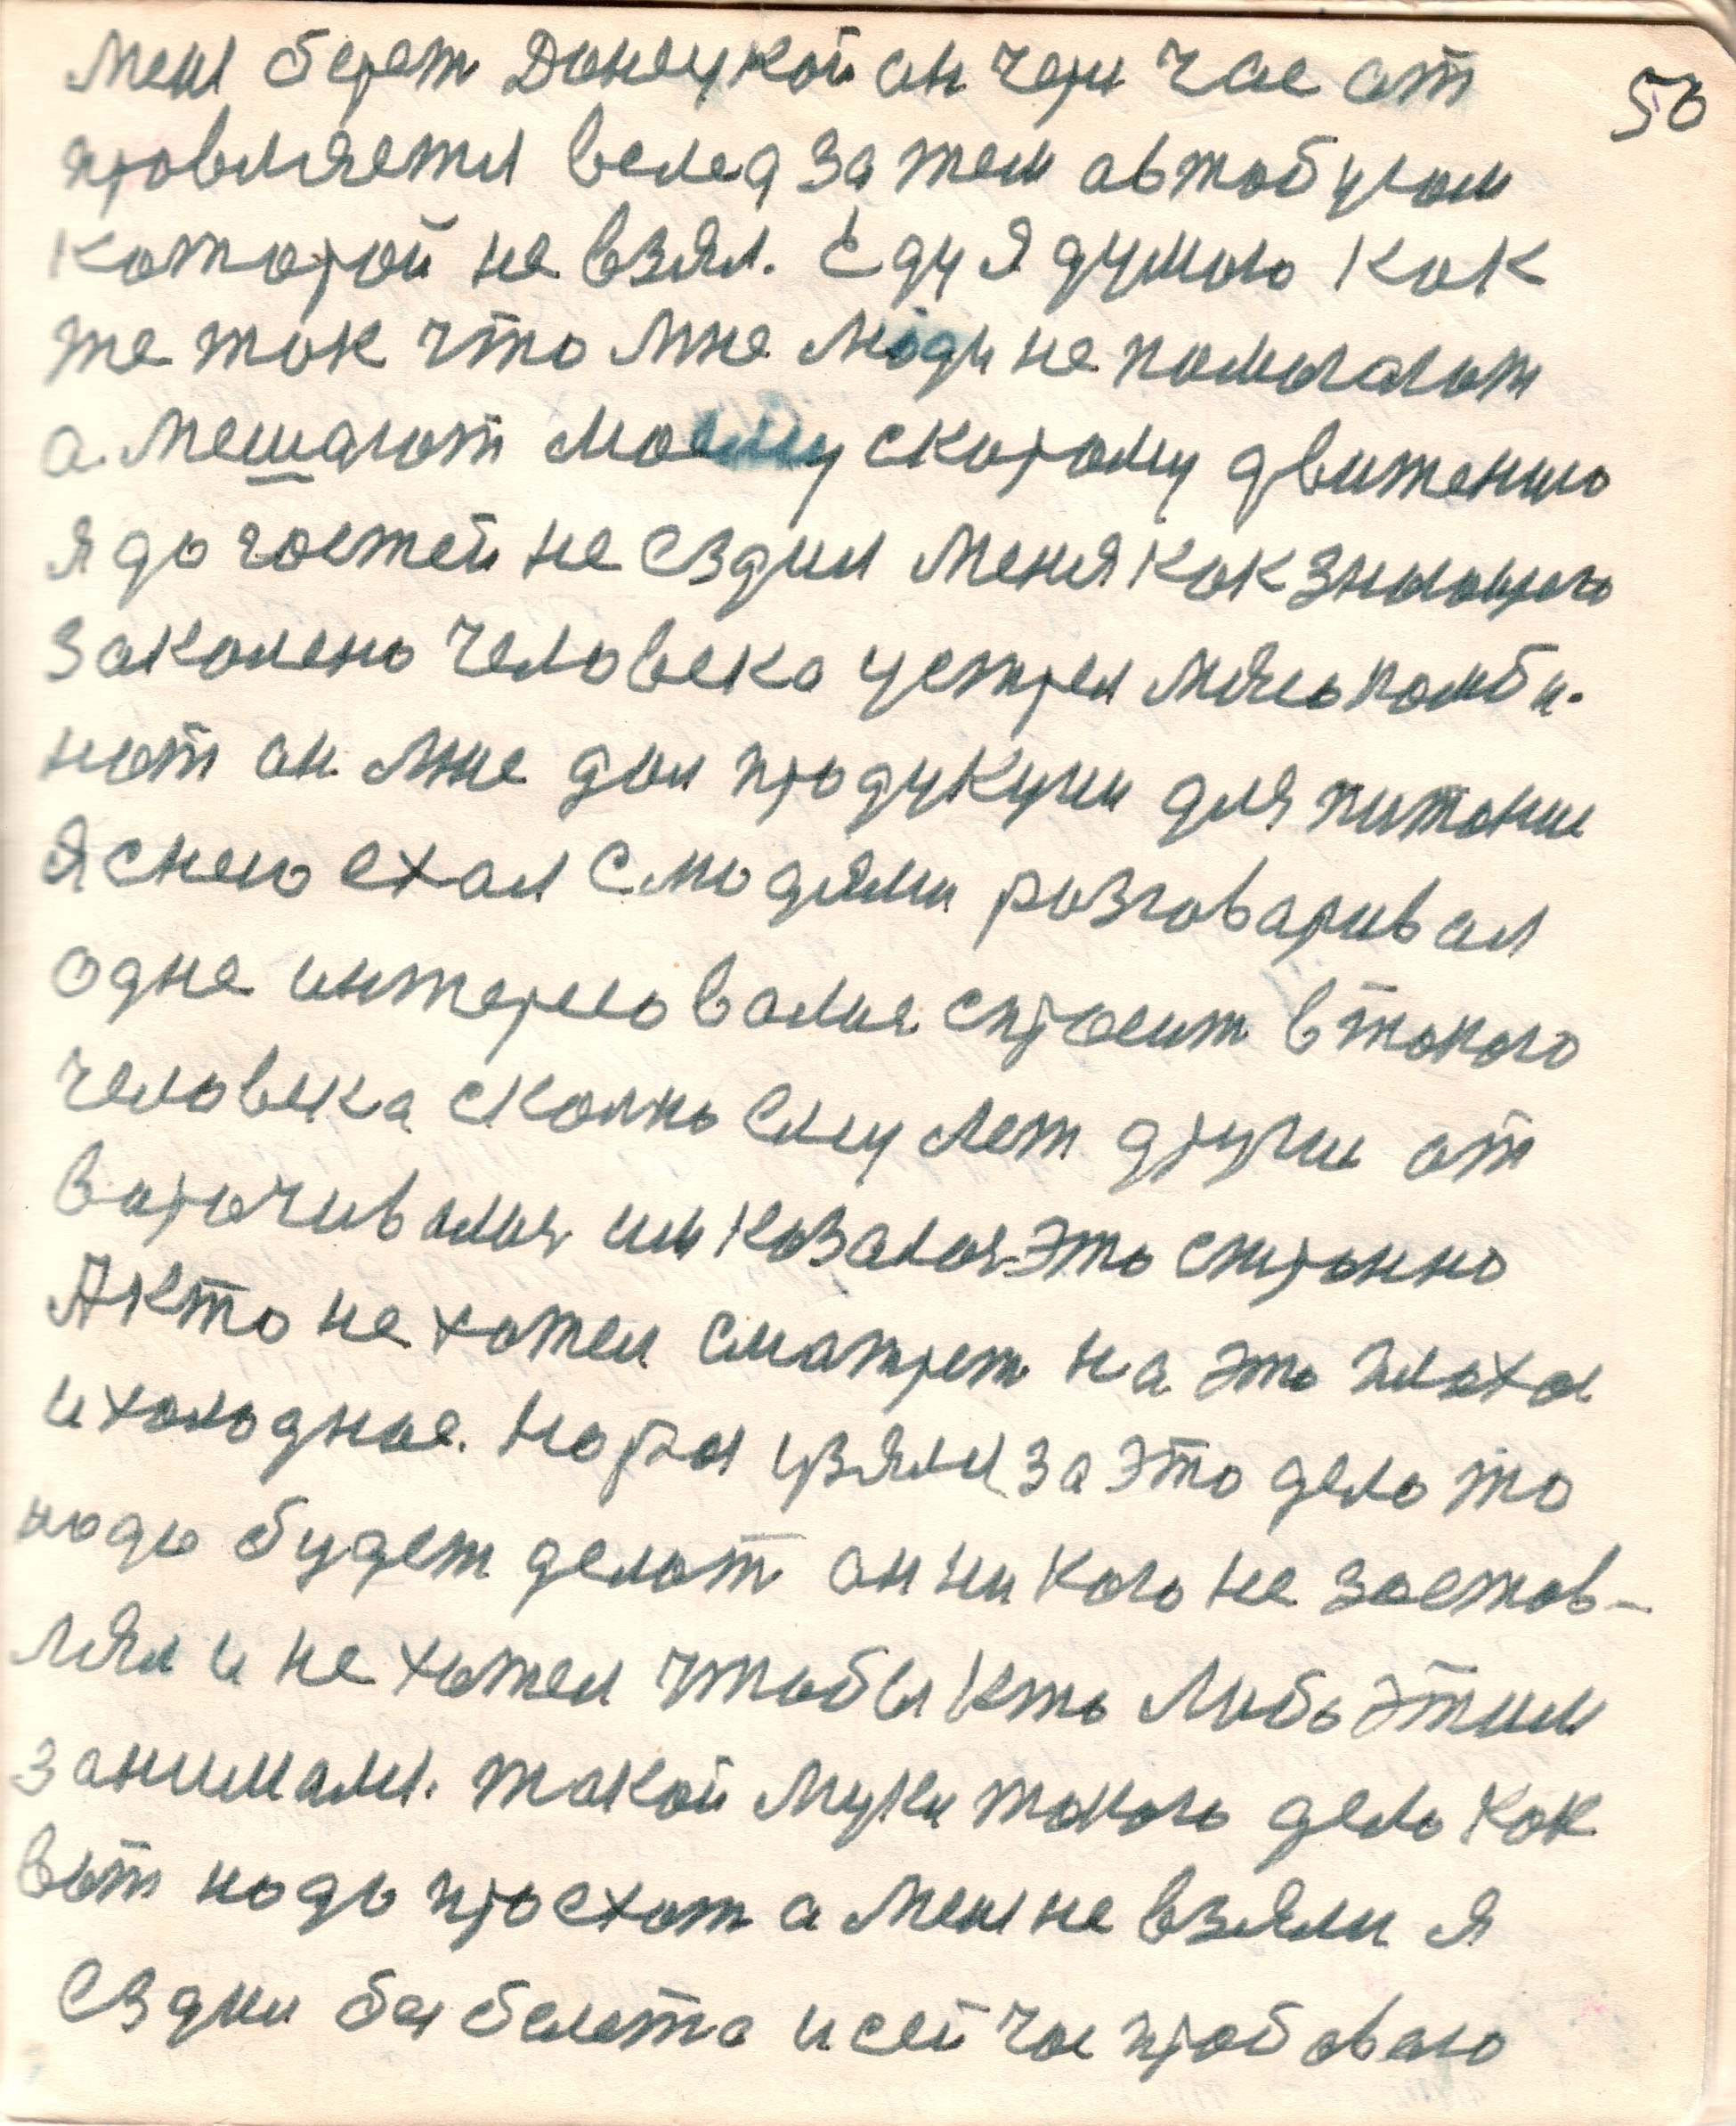 50
Мені берет Донецкой он чери час от
провляетя велед за тем автобусом
которой не взял. Еду я думаю как
же так что мне люди не помогают
а. мешают моему скорому движению
я до гостей не ездил меня как знающего
закалено человека устрел мясь комби-
нот он мне дал продукции для питание
Я снею ехал с людями розговаривал
одне интересовалися спросит в токого
человека сколко ему лет другие от
ворочивались им казалось это странно
А кто не хотел сматрет на это плохое
и холодное. Но роз узялся за это дело то
нодо будет делат он ни кого не заетов-
лял и не хотел чтобы кто либо этим
занимался. такой муки такого дело как
вот нодо проехат а мене не взяли я
ездил без белета и сейчас пробоваю